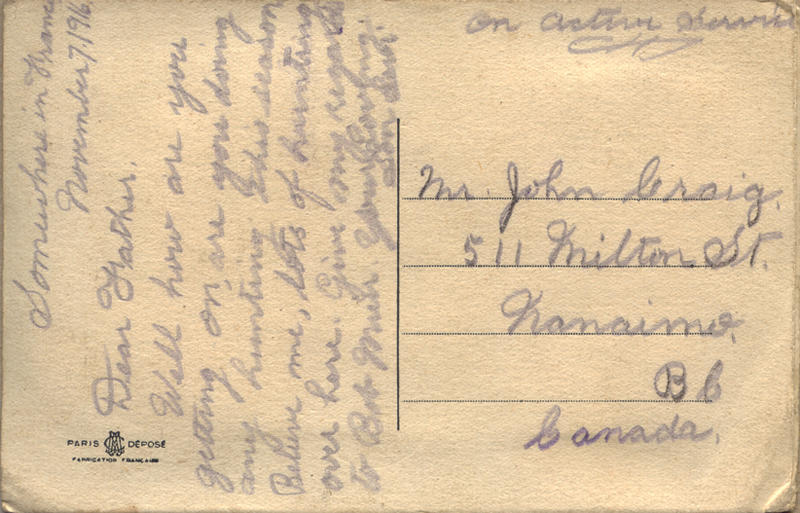 Somewhere in France
November 7, 1916
Dear Father.
Well how are you
getting on, are you doing
any hunting this season
Believe me, lots of hunting
over here. Give my regards
to Bob Muir. Your loving
son
On Active Service
Mr. John Craig.
511 Milton St.
Nanaimo.
B C
Canada.
PARIS DÉPOSÉ
FABRICATION FRANÇAISE